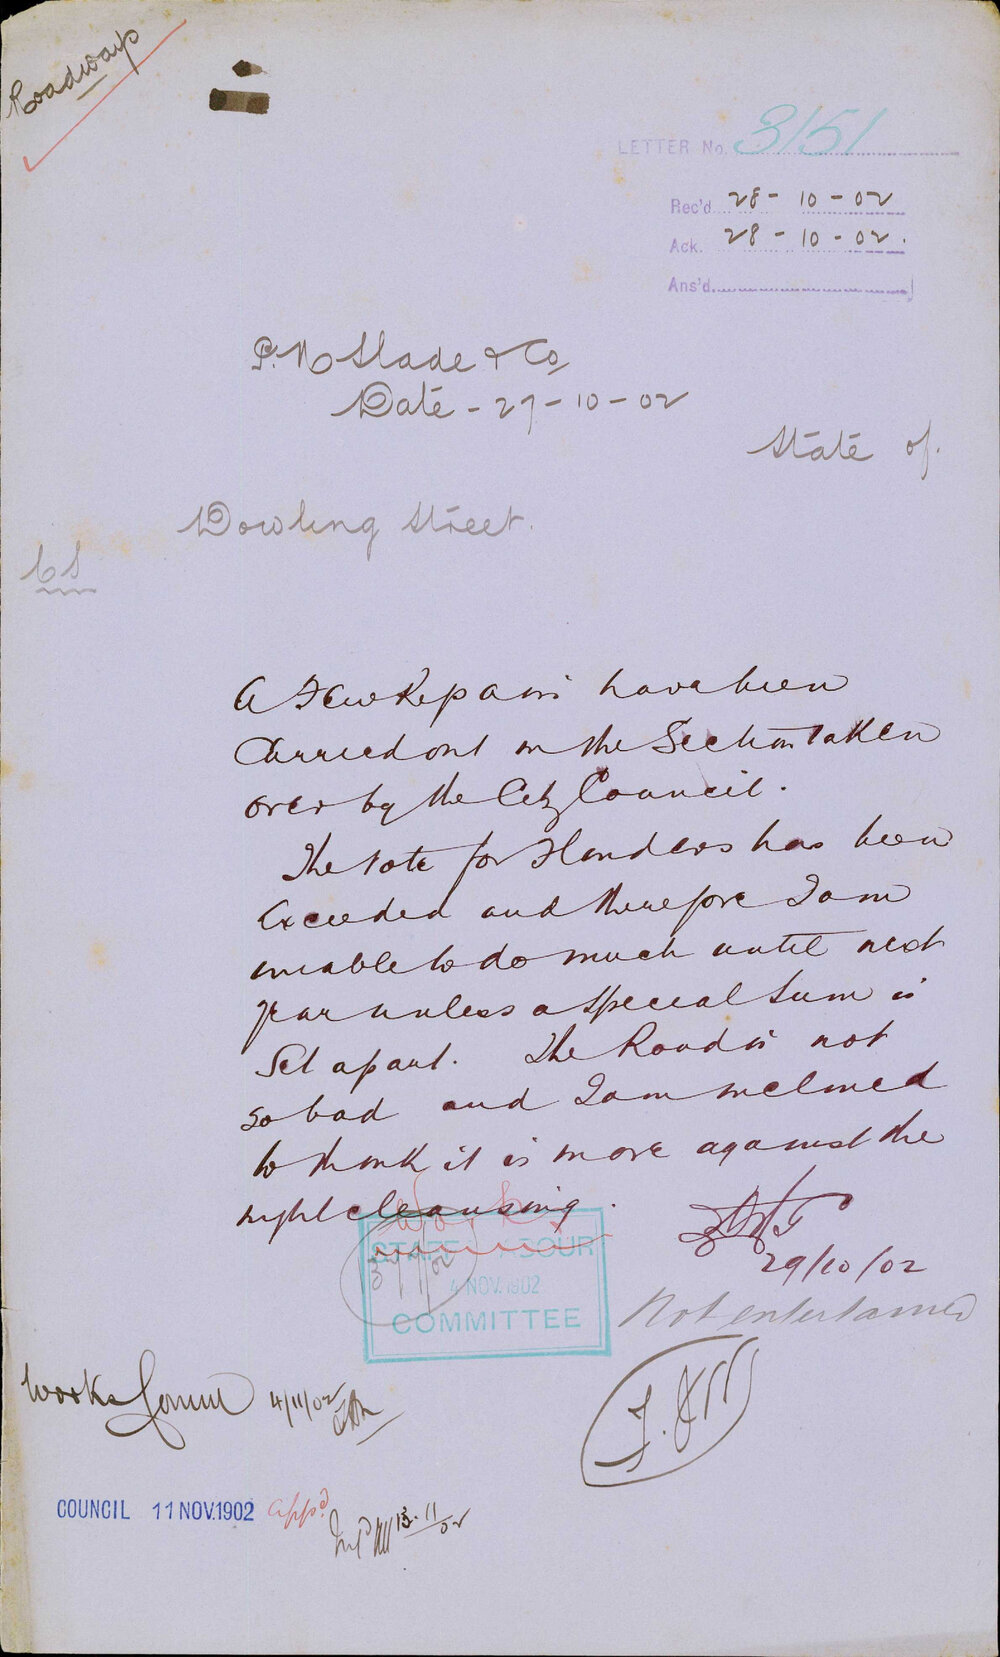 Roadways
LETTER No. 3151
Rec'd 28-10-02
Ack. 28-10-02.
Ans'd.
P. N Slade & Co
Date - 27-10-02
State of.
Dowling Street.
CS
A Few Repairs have been
Carried out on the Section taken
over by the City Council.
The vote for Flinders has been
exceeded and therefore I am
unable to do much until next
year unless a special sum is
set apart. The Road is not
so bad and I am inclined
to think it is more against the
night cleansing.
29/10/02
Works
STAFF LABOUR
4 NOV. 1902
COMMITTEE
Not entertained
Works Comm 4/11/02
COUNCIL 11 NOV. 1902 appd
13.11/02